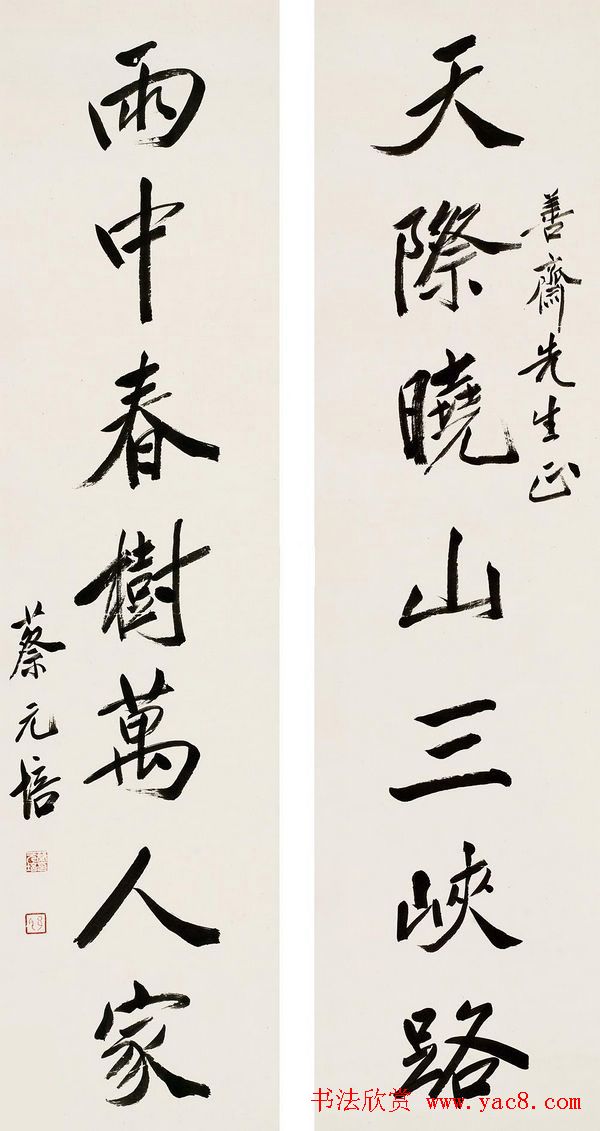 天際曉山三峽路
善齋先生正
雨中春樹萬人家
蔡元培
书法欣赏 www.yac8.com